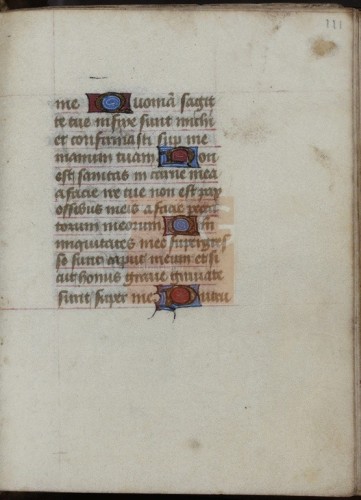 121
me Quoniā sagit
te tue infixe sunt michi
et confirmasti sup me
manum tuam Non
est sanitas in carne mea
a facie ire tue non est pax
ossibus meis a facie pecca
torum meorum Qm̄
iniquitates mee supergres
se sunt caput meum et si
cut honus graue grauate
sunt super me Putru